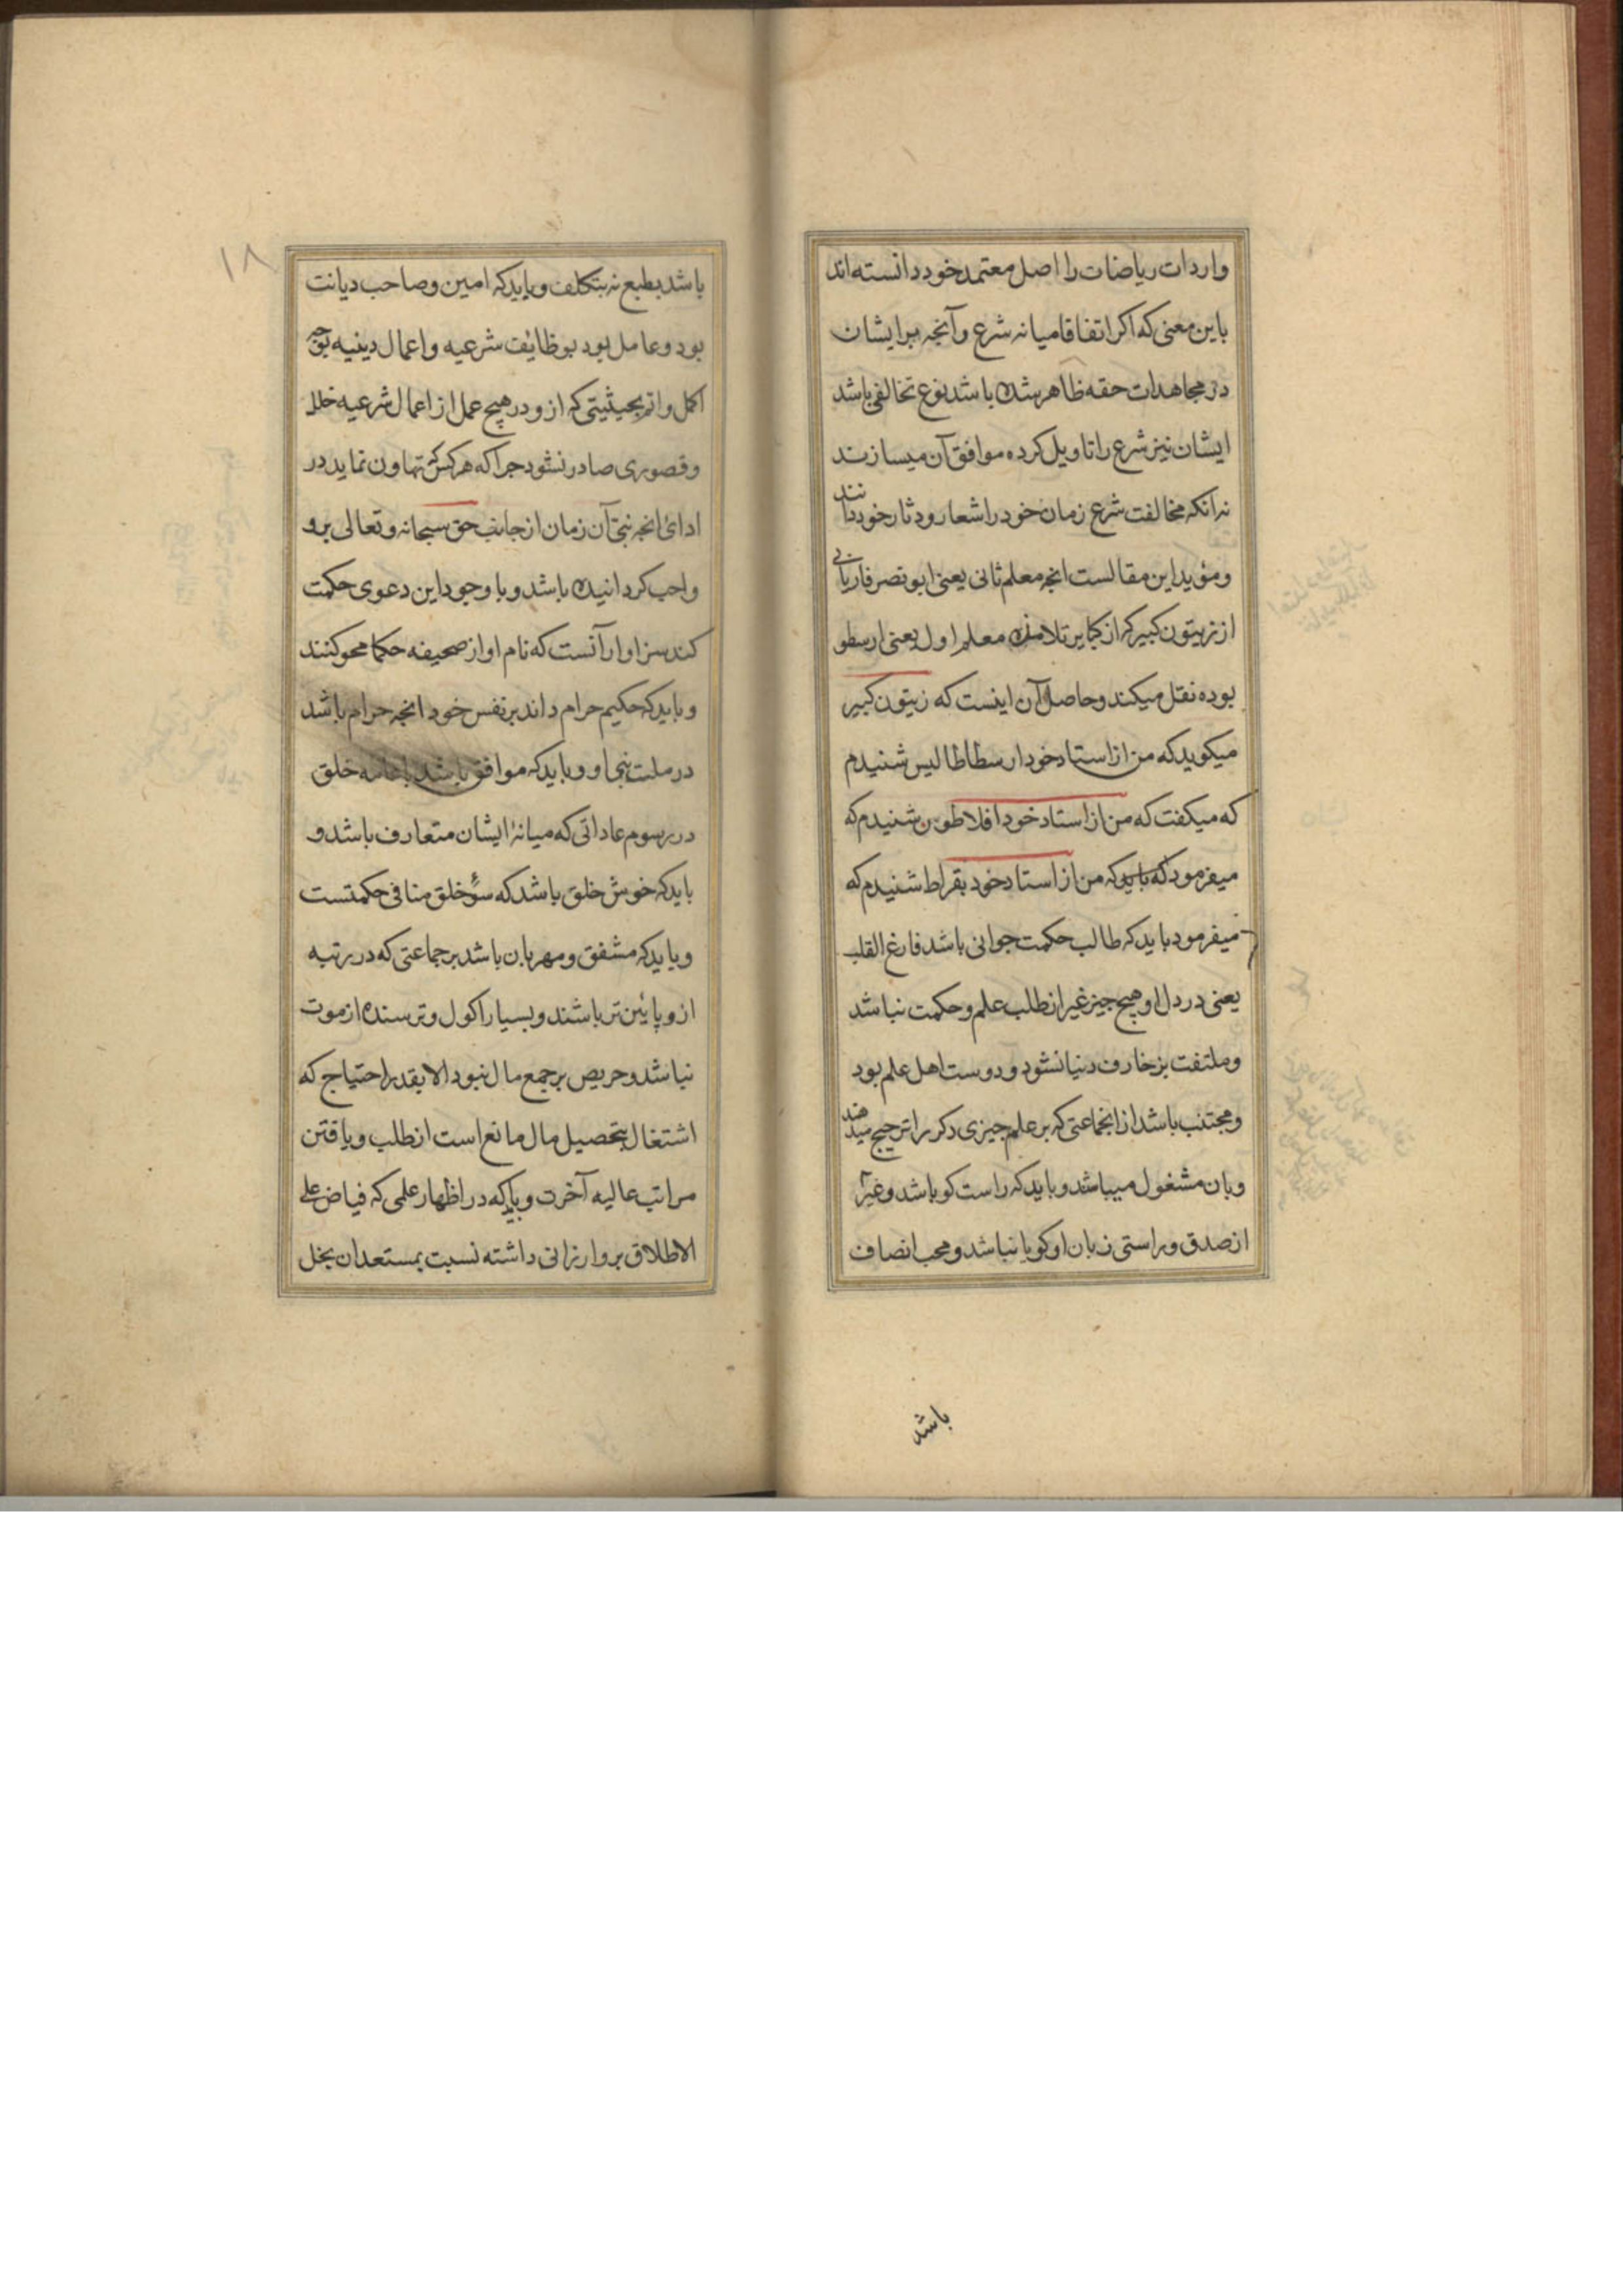 واردات ریاضات را اصل معتمد خود دانسته اند
باین معنی که اکر اتفاقا میانه شرع و آنجه بر ایشان
در مجاهدات حقه ظاهر شده باشد نوع تخالفی باشد
ایشان نیز شرع را تاویل کرده موافق آن میسازند
نه انکه مخالفت شرع زمان خود را شعار و دثار خود دانند
و مؤید این مقالست انجه معلم ثانی یعنی ابو نصر فاریابی
از زیتون کبیر که از کبایر تلامذه معلم اول یعنی ارسطو
بوده نقل میکند و حاصل آن اینست که زیتون کبیر
میکوید که من از استاد خود ارسطاطالیس شنیدم
که میکفت که من از استاد خود افلاطون شنیدم که
میفرمود که باید که من از استاد خود بقراط شنیدم که
میفرمود باید که طالب حکمت جوانی باشد فارغ القلب
یعنی در دل او هیچ جیز غیر از طلب علم و حکمت نباشد
و ملتفت بزخارف دنیا نشود و دوست اهل علم بود
و مجتنب باشد از انجماعتی که بر علم جیزی دکر را ترجیح میدهند
و بان مشغول میباشد و باید که راست کو باشد و غیر
از صدق و راستی زبان او کویا نباشد و محب انصاف
باشد
۱۸
باشد بطبع نه بتکلف و باید که امین و صاحب دیانت
بود و عامل بود بوظایف شرعیه و اعمال دینیه بوجه
اکمل و اتم بحیثیتی که ازو در هیچ عمل از اعمال شرعیه خلل
و قصوری صادر نشود جرا که هر کس تهاون نماید در
ادائ انجه نبی آن زمان از جانب حق سبحانه و تعالی برو
واجب کردانیده باشد و با وجود این دعوی حکمت
کند سزاوار آنست که نام او از صحیفه حکما محو کنند
و باید که حکیم حرام داند بر نفس خود انجه حرام باشد
در ملت نبی او و باید که موافق باشد با عامه خلق
در رسوم عاداتی که میانهٔ ایشان متعارف باشد و
باید که خوش خلق باشد که سوء خلق منافی حکمتست
و باید که مشفق و مهربان باشد بر جماعتی که در رتبه
ازو پائین تر باشند و بسیار اکول و ترسنده از موت
نباشد و حریص بر جمع مال نبود الا بقدر احتیاج که
اشتغال بتحصیل مال مانع است از طلب و یافتن
مراتب عالیه آخرت و باید که در اظهار علمی که فیاض علی
الاطلاق برو ارزانی داشته نسبت بمستعدان بخل